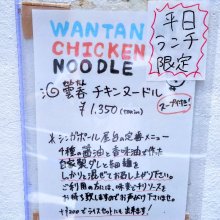 WANTAN
CHICKEN
NOODLE
平日
ランチ
限定
雲呑 チキンヌードル
スープ付き!
¥1,350 (tax in)
※シンガポール屋台の定番メニュー
4種の醤油と香味油で作った
自家製ダレと細麺を
しっかりと混ぜてお召し上がり下さい。
ご利用の方には、味変もサリソースを
お持ち致しますのでお声がけ下さい
+¥200でライスセットにも出来ます!